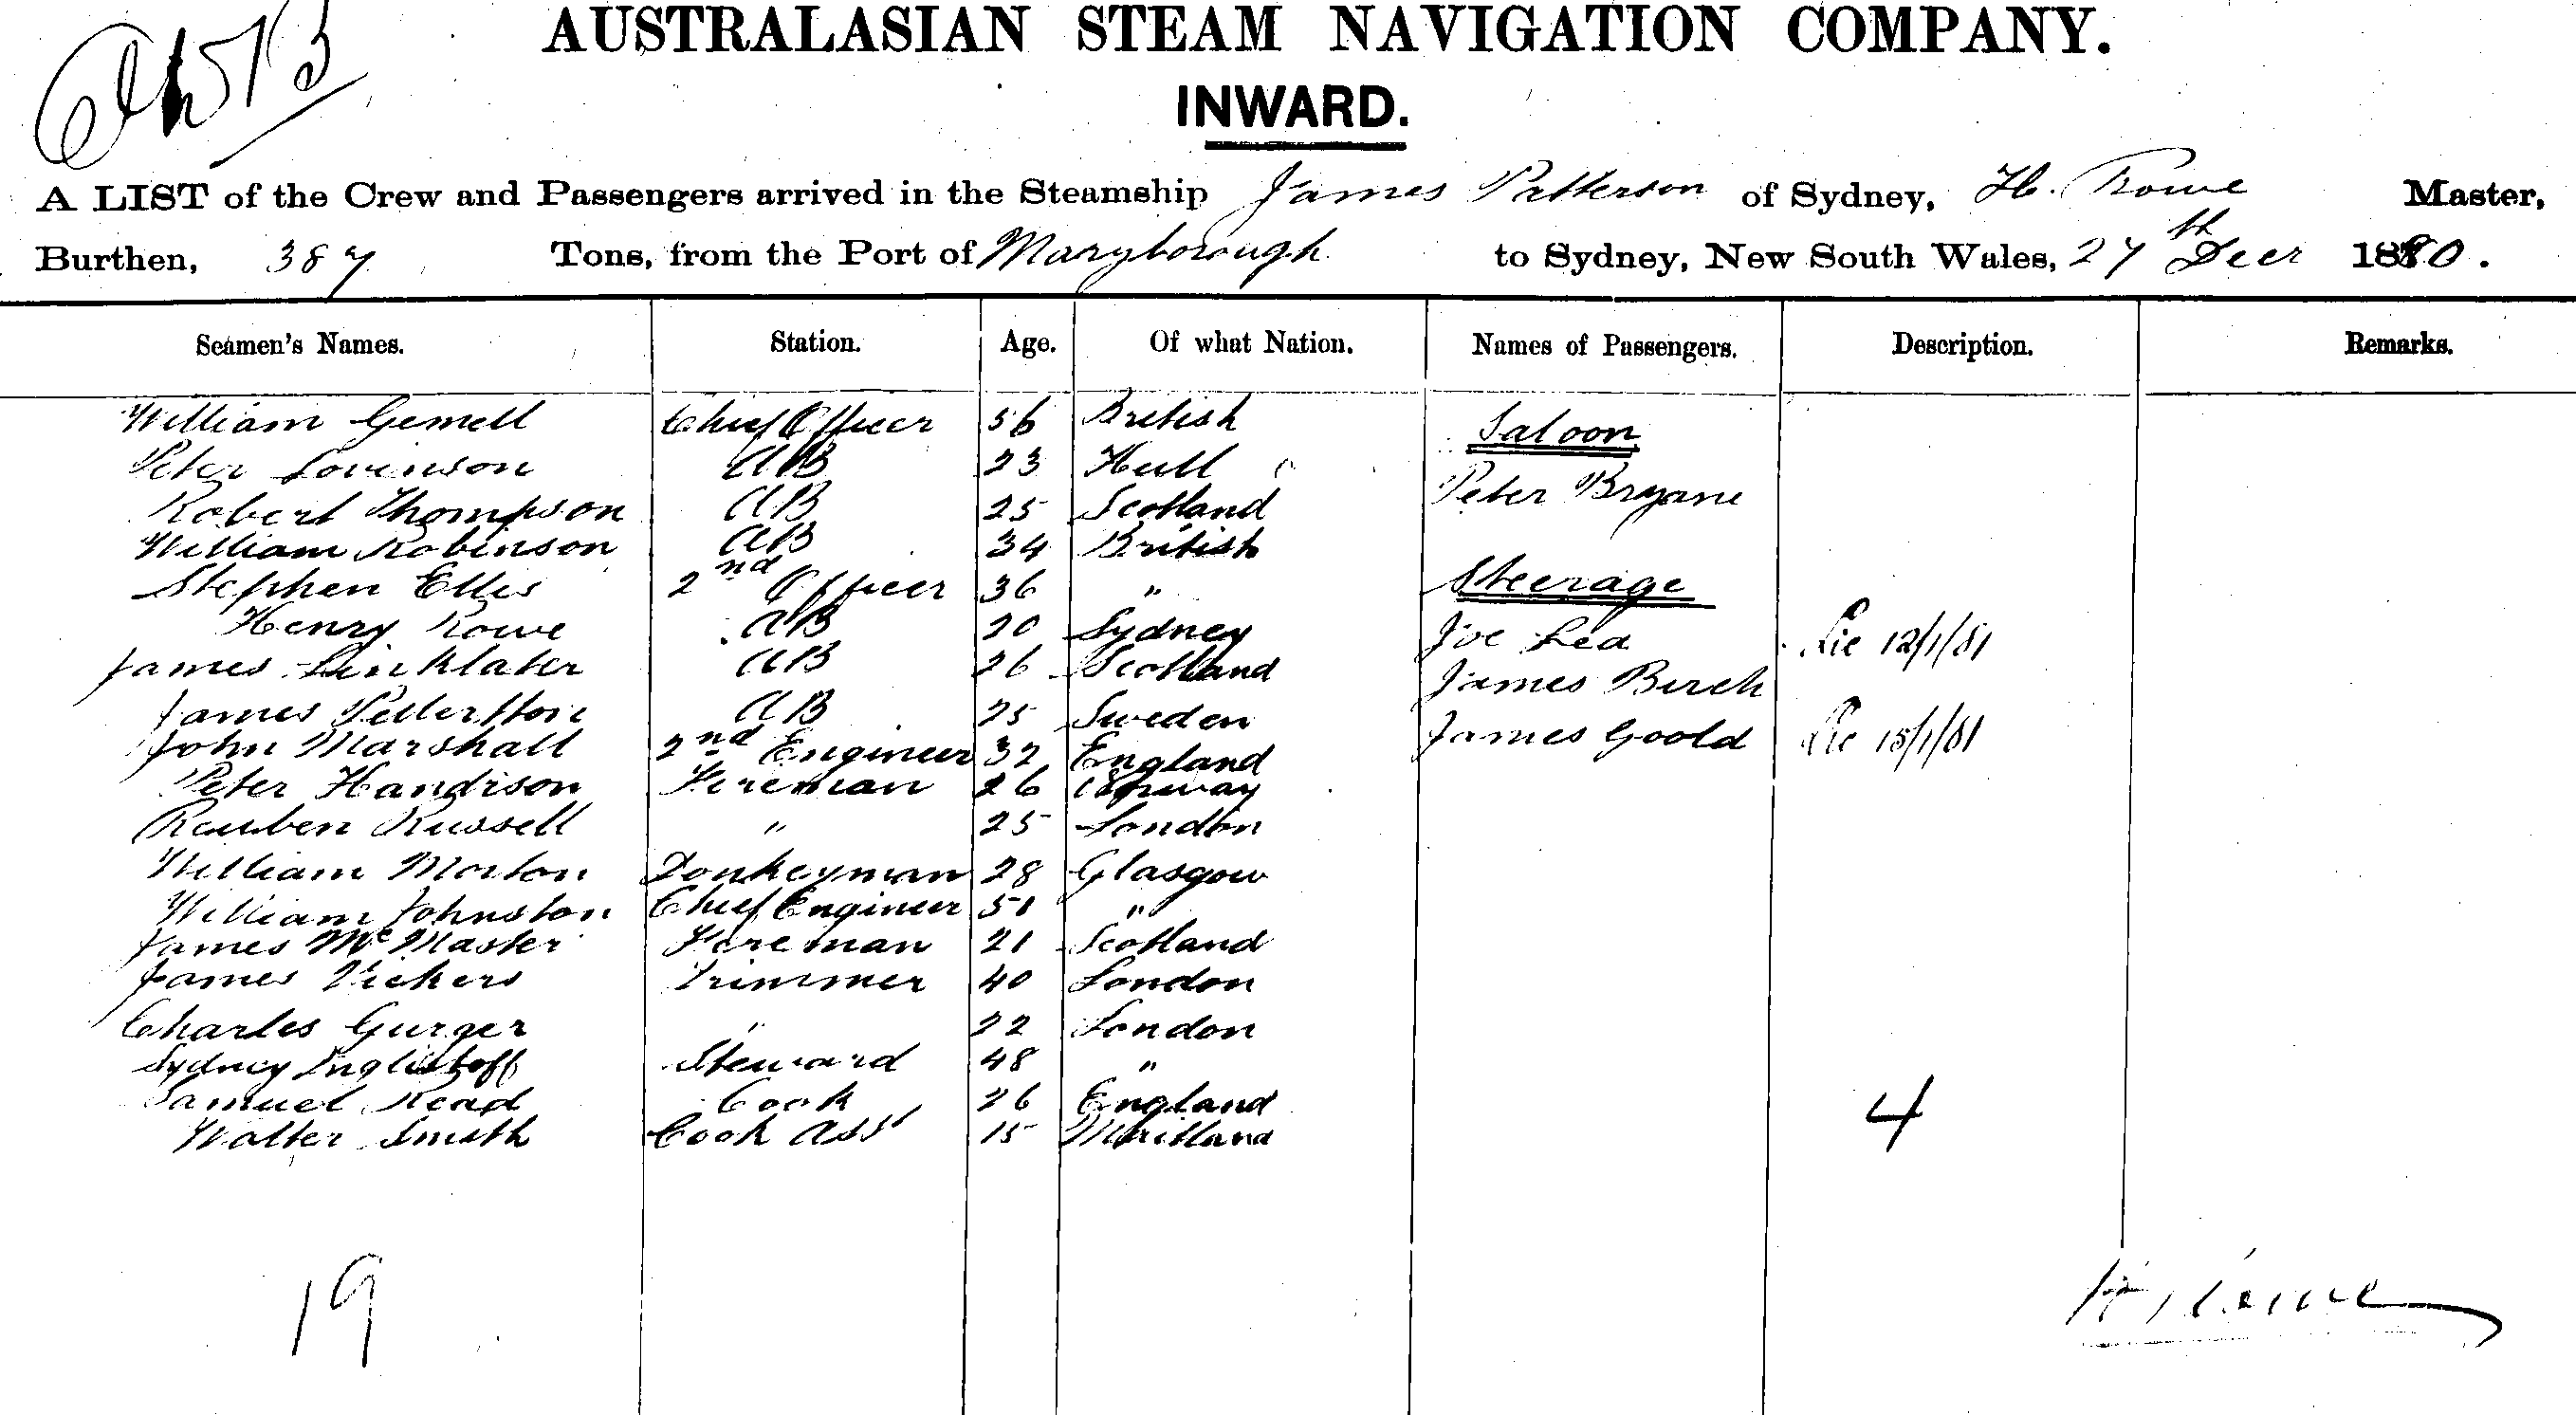 AUSTRALASIAN STEAM NAVIGATION COMPANY.
INWARD.
A LIST of the Crew and Passengers arrived in the Steamship James Patterson of Sydney, H. Rowe Master,
Burthen, 387 Tons, from the Port of Maryborough to Sydney, New South Wales, 27th Decr 1880.
Seamen's Names. Station. Age. Of what Nation. Names of Passengers. Description. Remarks.
William Gemell Chief Officer 56 British Saloon
Peter Lovinson AB 23 Hull Peter Bryane
Robert Thompson AB 25 Scotland
William Robinson AB 34 British
Stephen Ellis 2nd Officer 36 " Steerage
Henry Rowe AB 20 Sydney Joe Lea 12/1/81
James Linklater AB 26 Scotland James Birch
James AB 25 Sweden James Goold 15/1/81
John Marshall 2nd Engineer 32 England
Peter Handison Fireman 26 Norway
Reuben Russell " 25 London
William Morton Donkeyman 28 Glasgow
William Johnston Chief Engineer 51 "
James McMaster Fireman 21 Scotland
James Vickers Trimmer 40 London
Charles Gurger " 22 London
Sydney Steward 48 "
Samuel Read Cook 26 England
Walter Smith Cook Asst 15 Maitland
4
19
H Rowe